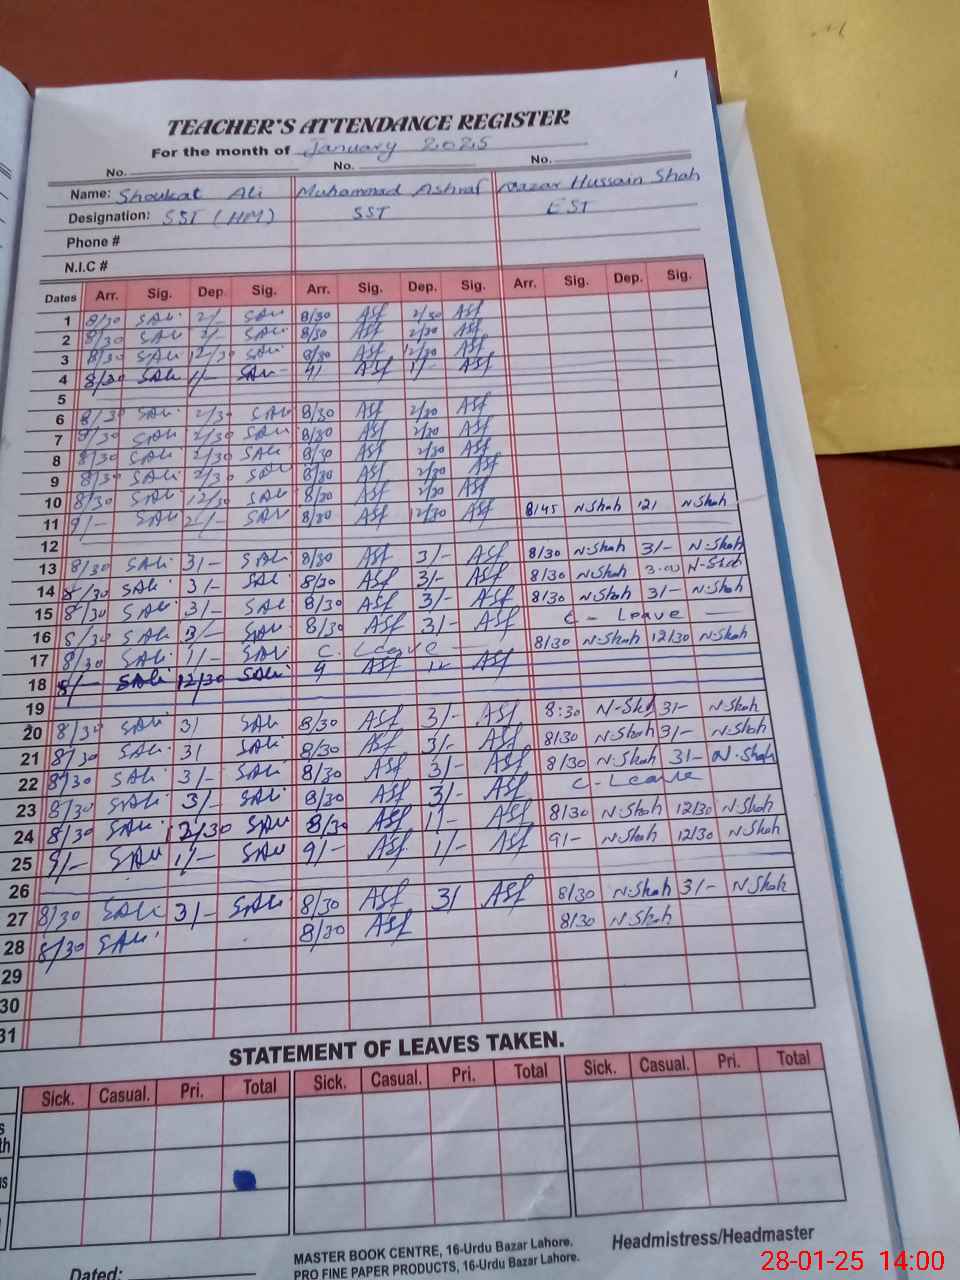 1
TEACHER'S ATTENDANCE REGISTER
For the month of January 2025
No. No. No.
Name: Shoukat Ali Muhammad Ashraf Nazar Hussain Shah
Designation: SST (HM) SST EST
Phone #
N.I.C #
Dates Arr. Sig. Dep. Sig. Arr. Sig. Dep. Sig. Arr. Sig. Dep. Sig.
1 8/30 SAli 2/- SAli 8/30 Asf 2/30 Asf
2 8/30 SAli 2/- SAli 8/30 Asf 2/30 Asf
3 8/30 SAli 12/30 SAli 8/30 Asf 12/30 Asf
4 8/30 SAli 1/- SAli 9/ Asf 1/- Asf
5
6 8/30 SAli 2/30 SAli 8/30 Asf 2/30 Asf
7 8/30 SAli 2/30 SAli 8/30 Asf 2/30 Asf
8 8/30 SAli 2/30 SAli 8/30 Asf 2/30 Asf
9 8/30 SAli 2/30 SAli 8/30 Asf 2/30 Asf
10 8/30 SAli 12/30 SAli 8/30 Asf 2/30 Asf
11 9/- SAli 2/- SAli 8/30 Asf 12/30 Asf 8/45 N.Shah 12/ N.Shah
12
13 8/30 SAli 3/- SAli 8/30 Asf 3/- Asf 8/30 N.Shah 3/- N.Shah
14 8/30 SAli 3/- SAli 8/30 Asf 3/- Asf 8/30 N.Shah 3.00 N.Shah
15 8/30 SAli 3/- SAli 8/30 Asf 3/- Asf 8/30 N.Shah 3/- N.Shah
16 8/30 SAli 3/- SAli 8/30 Asf 3/- Asf C - Leave
17 8/30 SAli 1/- SAli C. Leave 8/30 N.Shah 12/30 N.Shah
18 8/- SAli 12/30 SAli 9 Asf Asf
19
20 8/30 SAli 3/ SAli 8/30 Asf 3/- Asf 8:30 N-Shah 3/- N.Shah
21 8/30 SAli 3/ SAli 8/30 Asf 3/- Asf 8/30 N.Shah 3/- N.Shah
22 8/30 SAli 3/- SAli 8/30 Asf 3/- Asf 8/30 N.Shah 3/- N.Shah
23 8/30 SAli 3/- SAli 8/30 Asf 3/- Asf C-Leave
24 8/30 SAli 12/30 SAli 8/30 Asf 1/- Asf 8/30 N.Shah 12/30 N.Shah
25 9/- SAli 1/- SAli 9/- Asf 1/- Asf 9/- N.Shah 12/30 N.Shah
26
27 8/30 SAli 3/- SAli 8/30 Asf 3/ Asf 8/30 N.Shah 3/- N.Shah
28 8/30 SAli 8/30 Asf 8/30 N.Shah
29
30
31
STATEMENT OF LEAVES TAKEN.
Sick. Casual. Pri. Total Sick. Casual. Pri. Total Sick. Casual. Pri. Total
Dated:
MASTER BOOK CENTRE, 16-Urdu Bazar Lahore.
PRO FINE PAPER PRODUCTS, 16-Urdu Bazar Lahore.
Headmistress/Headmaster
28-01-25 14:00